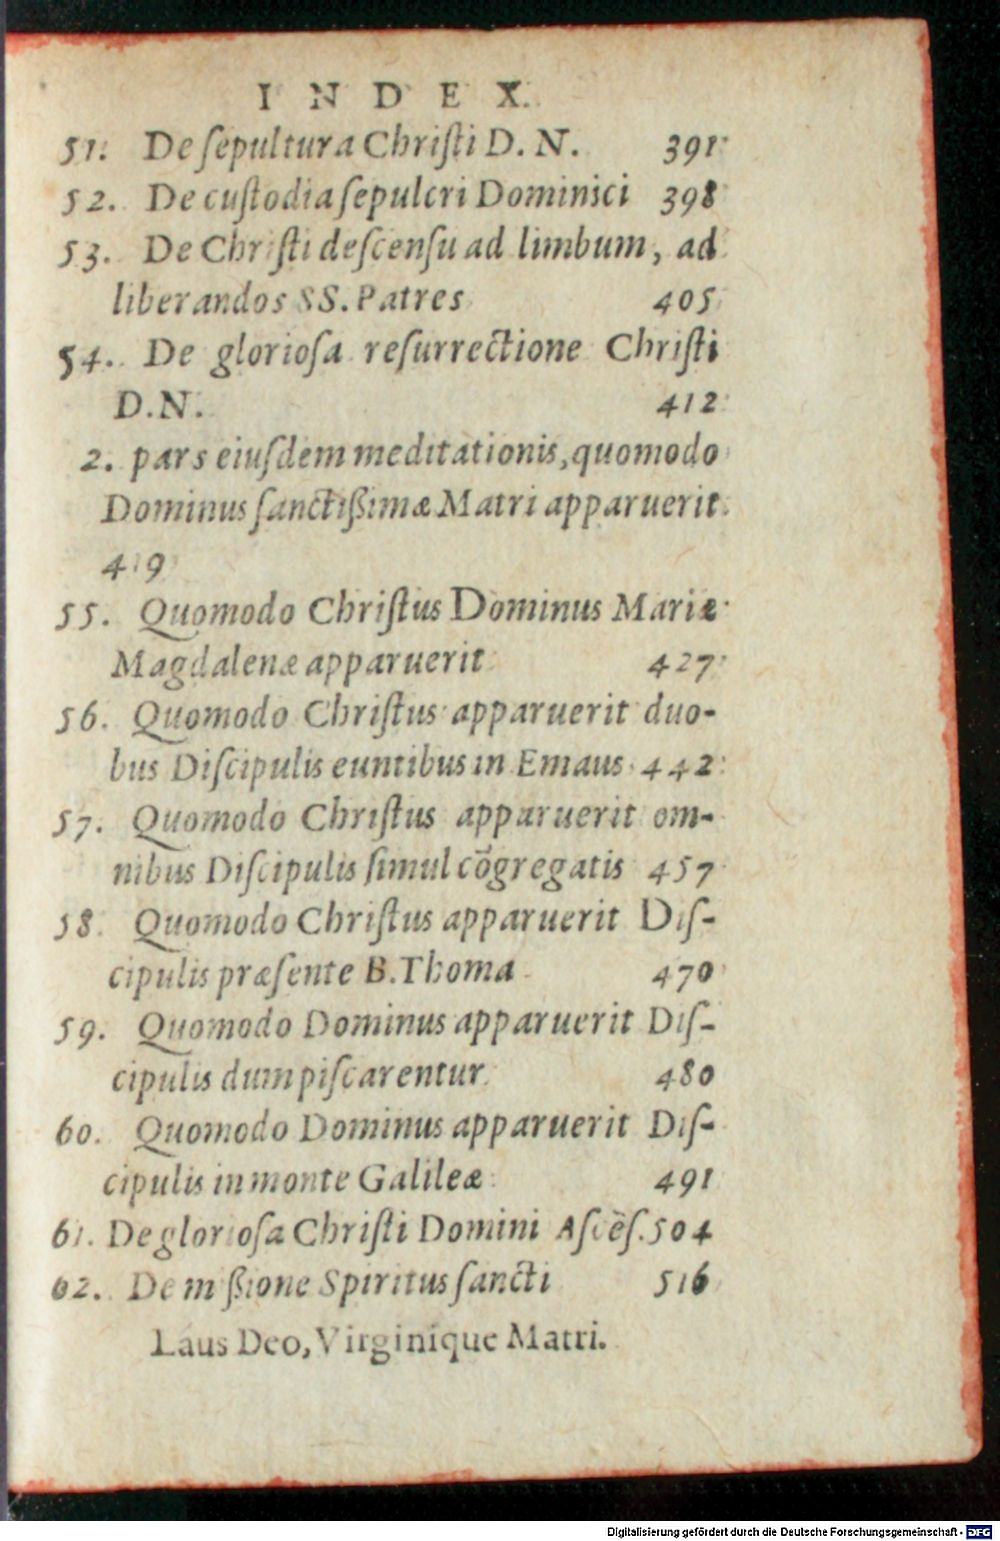 INDEX.
51. De ſepultura Chriſti D. N. 391
52. De cuſtodia ſepulcri Dominici 398
53. De Chriſti deſcenſu ad limbum, ad
liberandos SS. Patres 405
54. De glorioſa reſurrectione Chriſti
D.N. 412
2. pars eiuſdem meditationis, quomodo
Dominus ſanctißimæ Matri apparuerit.
419
55. Quomodo Chriſtus Dominus Mariæ
Magdalenæ apparuerit 427
56. Quomodo Chriſtus apparuerit duo-
bus Diſcipulis euntibus in Emaus 442
57. Quomodo Chriſtus apparuerit om-
nibus Diſcipulis ſimul cõgregatis 457
58. Quomodo Chriſtus apparuerit Diſ-
cipulis præſente B. Thoma 470
59. Quomodo Dominus apparuerit Diſ-
cipulis dum piſcarentur 480
60. Quomodo Dominus apparuerit Diſ-
cipulis in monte Galileæ 491
61. De glorioſa Chriſti Domini Aſcẽſ. 504
62. De mißione Spiritus ſancti 516
Laus Deo, Virginíque Matri.
Digitalisierung gefördert durch die Deutsche Forschungsgemeinschaft - DFG